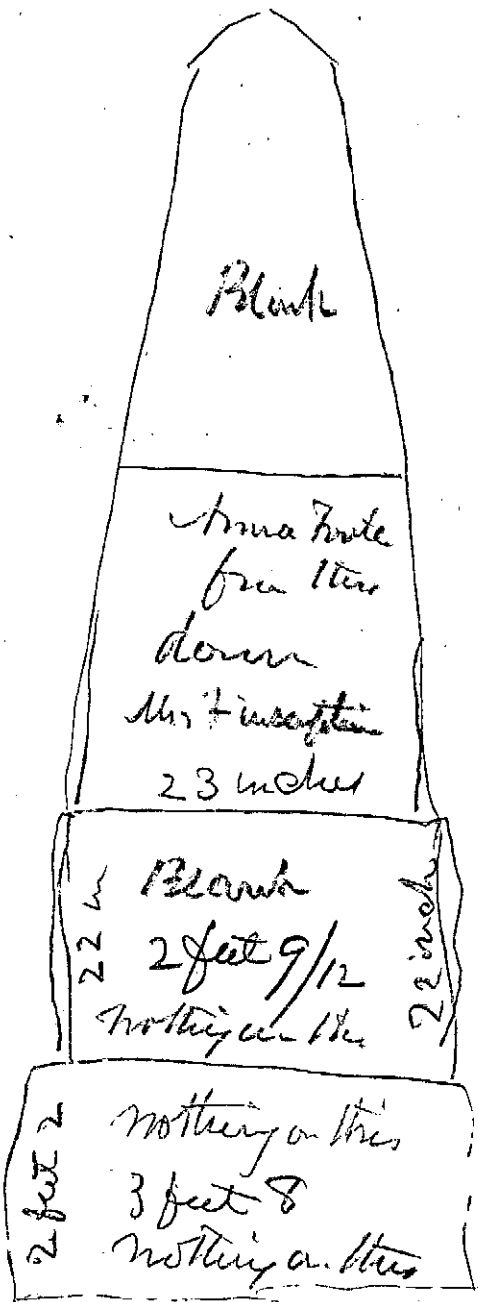 Blank
Anna Foote
from this
down
Mrs F inscription
23 inches
22 in
Blank
2 feet 9/12
22 inch
nothing on this
2 feet 2
nothing on this
3 feet 8
nothing on this